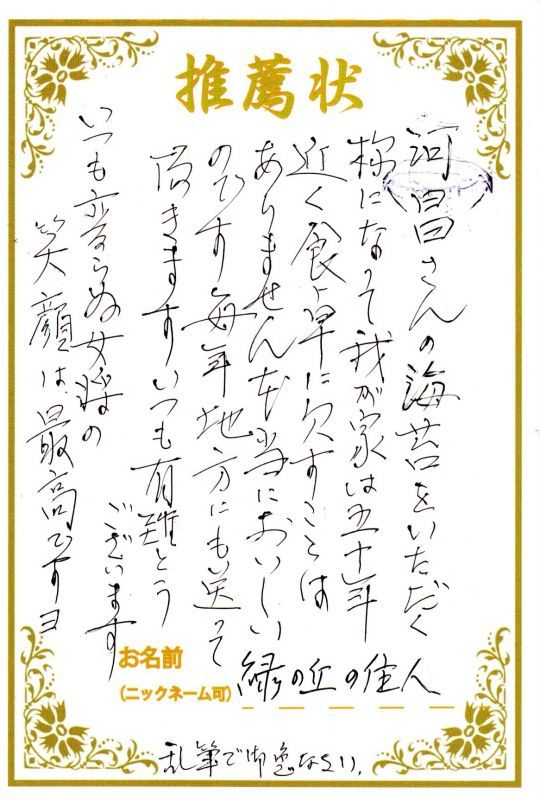 推薦状
河昌さんの海苔をいただく
様になって我が家は五十年
近く食卓に欠すことは
ありません本当においしい
のです毎年地方にも送って
頂きますいつも有難とう
ございます
いつも変らぬ女将の
笑顔は最高ですヨ
お名前
(ニックネーム可)
緑の丘の住人
乱筆で御免なさい、